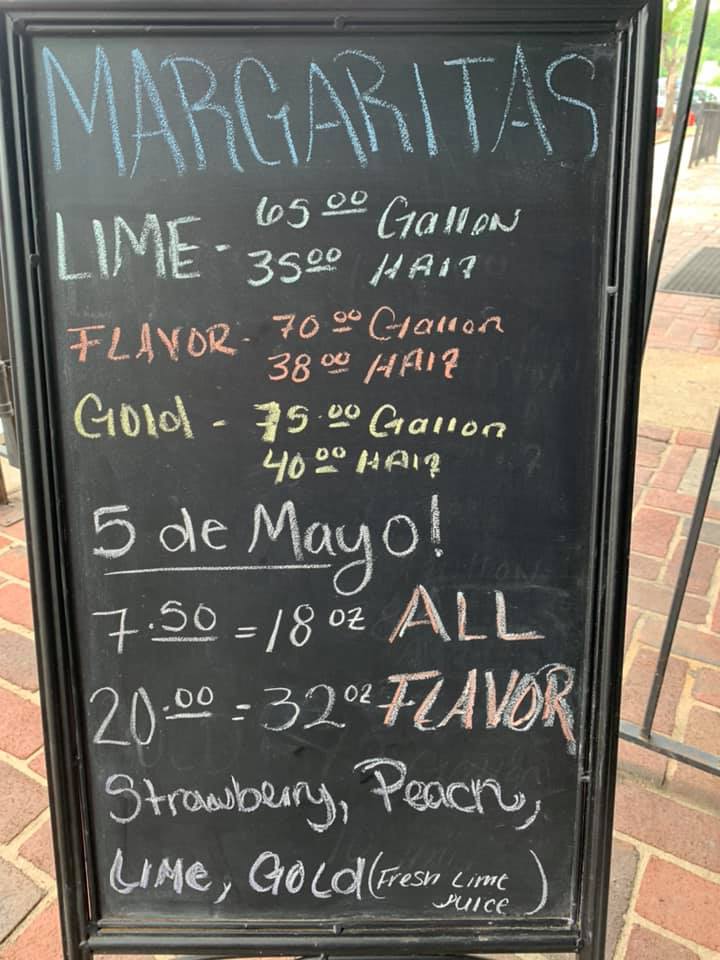 MARGARITAS
LIME - 65.00 Gallon
35.00 HAlf
FLAVOR - 70.00 Gallon
38.00 HAlf
Gold - 75.00 Gallon
40.00 HAlf
5 de Mayo!
7.50 = 18 oz ALL
20.00 = 32 oz FLAVOR
Strawberry, Peach,
LIME, GOLd (Fresh Lime
Juice)